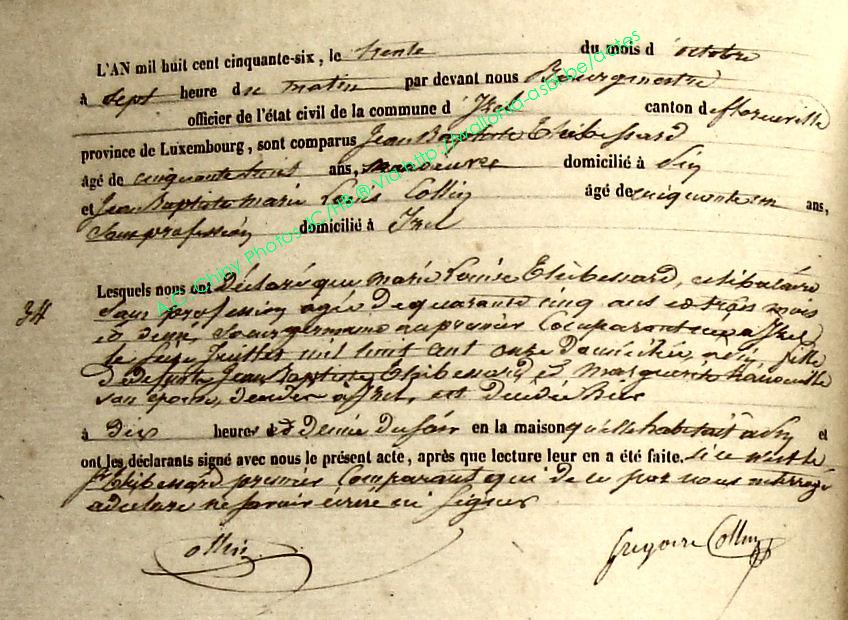 L'AN mil huit cent cinquante-six, le trente du mois d'octobre
à sept heure du matin par devant nous Bourgmestre
officier de l'état civil de la commune d'Izel canton de florenville
province de Luxembourg, sont comparus Jean Baptiste Thibessard
âgé de cinquante huit ans, manoeuvre domicilié à
et Jean Baptiste marie Louis Collin âgé de cinquante un ans,
Sans profession domicilié à Izel
Lesquels nous ont Déclaré que marie Louise Thibessard, célibataire
34
Sans profession agée de quarante cinq ans et trois mois
et demi, Soeur germaine au premier Comparant née à Izel
le Seize Juillet mil huit cent onze Domiciliée fille
De defunts Jean Baptiste Thibessard, et Marguerite
son épouse, décédés à Izel, est décédée hier
à Dix heures et Demie du Soir en la maison qu'elle habitait à et
ont les déclarants signé avec nous le présent acte, après que lecture leur en a été faite. Si ce n'est le
Thibessard premier Comparant qui de ce par nous interrogé
a déclaré ne savoir écrire ni Signer
Collin
Gregoire Collin
A.C. Chiny Photos JC/HB ® Via http://wallonia-asbl.be/dates